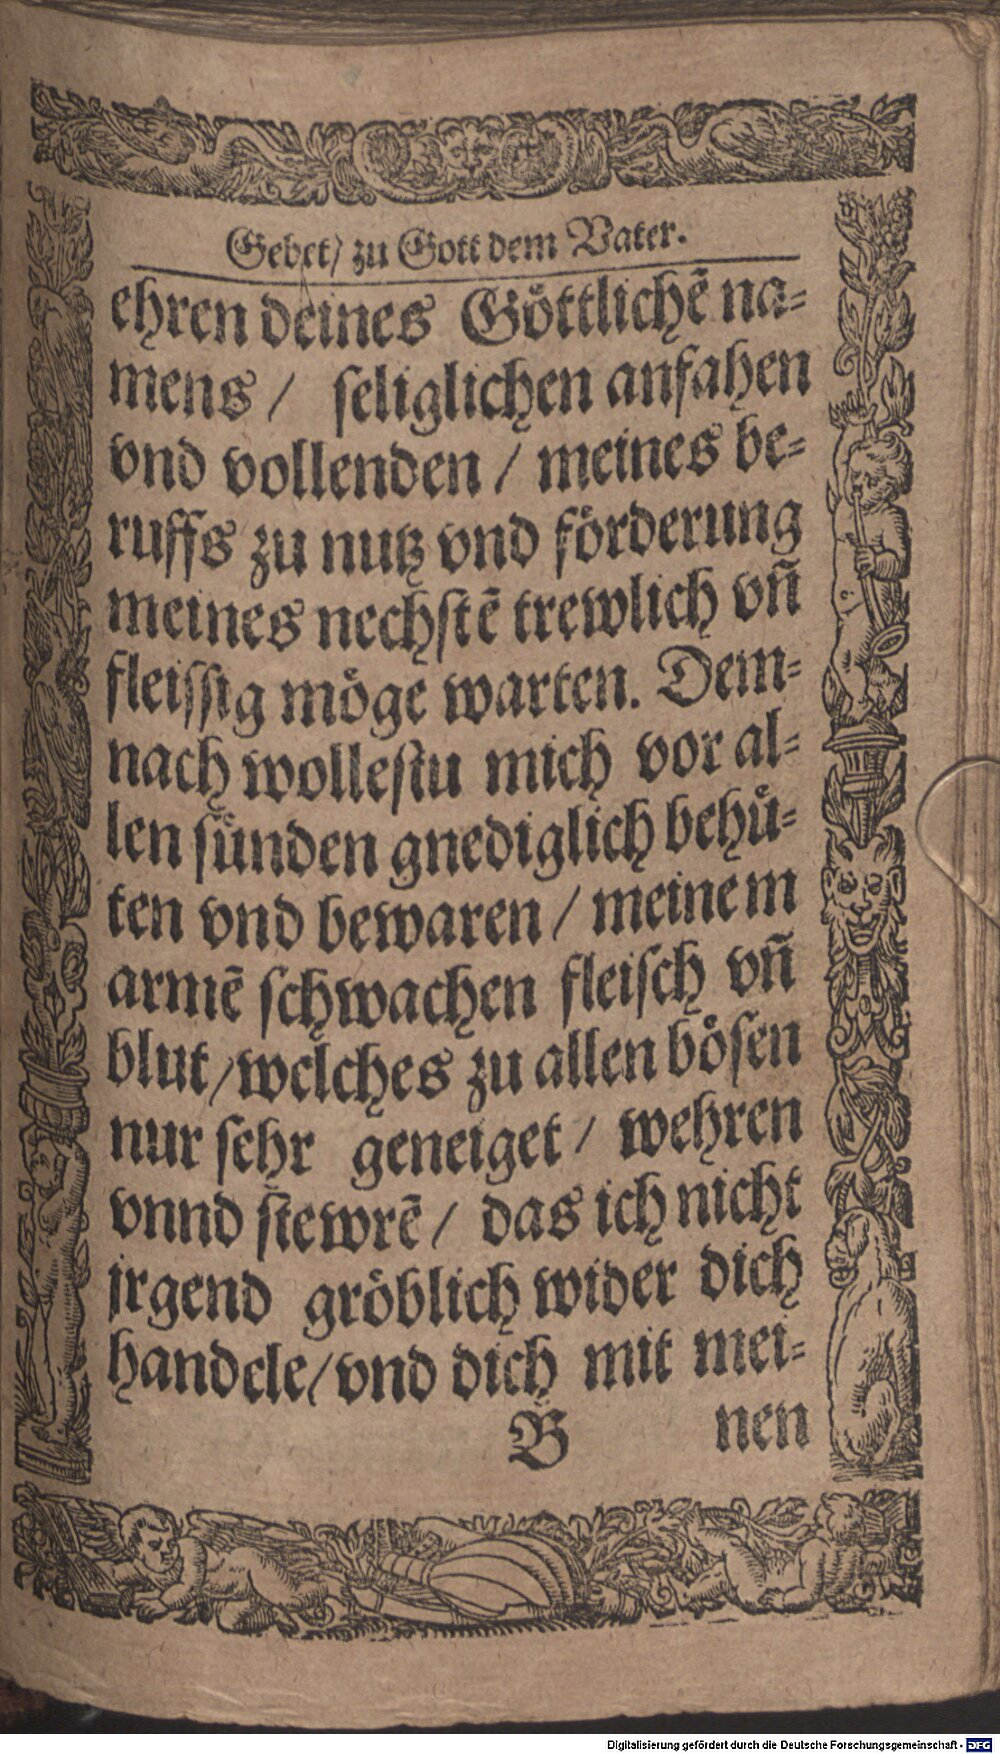 Gebet/ zu Gott dem Vater.
ehren deines Göttlichẽ na⸗
mens / ſeliglichen anfahen
vnd vollenden / meines be⸗
ruffs zu nutz vnd förderung
meines nechſtẽ trewlich vñ
fleiſſig möge warten. Dem⸗
nach wolleſtu mich vor al⸗
len ſünden gnediglich behü⸗
ten vnd bewaren / meinem
armẽ ſchwachen fleiſch vñ
blut / welches zu allen böſen
nur ſehr geneiget / wehren
vnnd ſtewrẽ / das ich nicht
jrgend gröblich wider dich
handele / vnd dich mit mei⸗
B nen
Digitalisierung gefördert durch die Deutsche Forschungsgemeinschaft - DFG